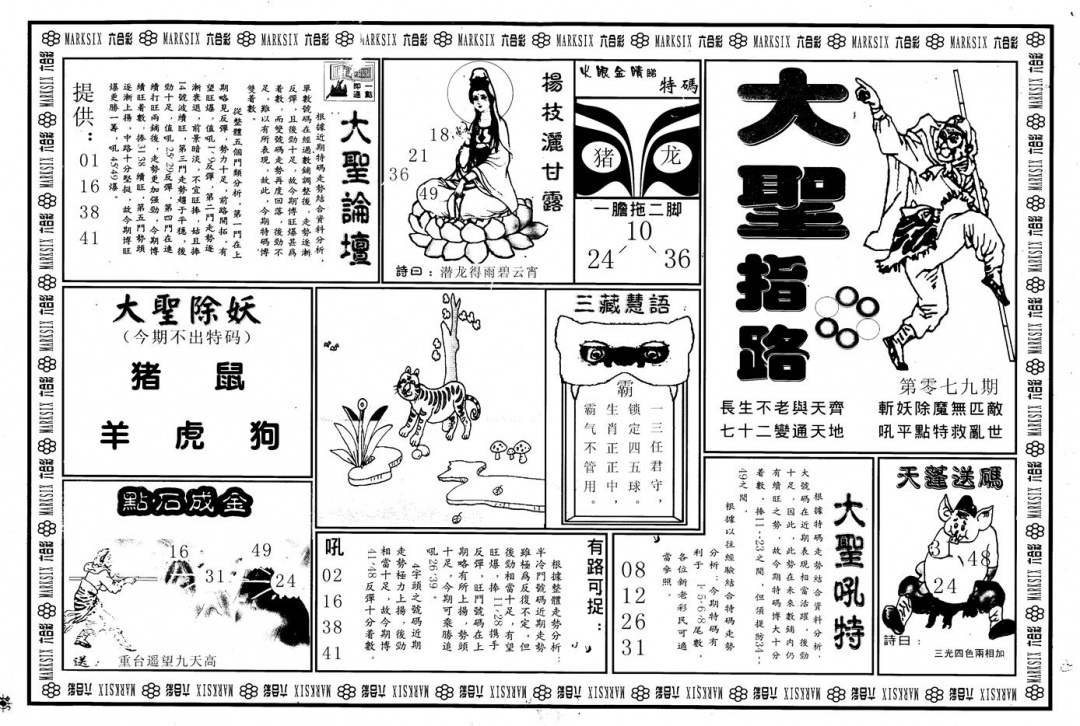 MARKSIX 六合彩 MARKSIX 六合彩 MARKSIX 六合彩 MARKSIX 六合彩 MARKSIX 六合彩 MARKSIX 六合彩 MARKSIX 六合彩 MARKSIX 六合彩 MARKSIX 六合彩 MARKSIX 六合彩
大聖指路
第零七九期
長生不老與天齊
斬妖除魔無匹敵
七十二變通天地
吼平點特救亂世
火眼金睛睇
特碼
猪
龙
一膽拖二脚
10
24
36
楊枝灑甘露
18
21
36
49
詩曰：潜龙得雨碧云宵
一點即通
大聖論壇
根據近期特碼走勢結合資料分析，
單數號碼在經過數鋪調整後，走勢逐漸
反彈，且後勁十足，故今期博旺爆甚爲
着數，而變號碼走勢再度回落，後勁不
足，雖以有所表現，故此，今期特碼博
雙着數。
從整體五個門類分析，第一門在上
期略見反彈，勢力十足，前路開拓，有
望旺爆，值吼1·9反彈，第二門走勢逐
漸衰退，前景暗淡，不宜旺捧，姑且捧
14號波續旺，第三門走勢趨于平穩，後
勁十足，值吼25·29反彈，第四門在連
續打旺兩鋪後，走勢更加强勁，今期博
續旺着數，捧31·38續旺，第五門勢頭
逐漸上揚，中路十分堅挺，故今期博旺
爆更勝一籌，吼45·49爆。
提供：
01
16
38
41
大聖除妖
（今期不出特码）
猪 鼠
羊 虎 狗
三藏慧語
霸
一三任君守，
锁定四五球。
生肖正正中，
霸气不管用。
點石成金
16
49
31
24
送：重台遥望九天高
有路可捉：
根據整體走勢分析：
半冷門號碼近期走勢
雖極爲反復不定，但
後勁相當十足，有望
旺爆，捧11·28携手
反彈，旺門號碼在上
期略有所上揚，勢頭
十足，今期可乘勝追
吼26·39。
4字頭之號碼近期
走勢極力上揚，後勁
相當十足，故今期博
41·48反彈十分着數。
吼
02
16
38
41
大聖吼特
根據特碼走勢結合資料分析，
大號碼在近期表現相當活躍，後勁
十足，因此，此勢在未來數鋪内仍
有續旺之勢，故今期特碼博大十分
着數，捧11--23之間，但須提防34--
49之間。
根據以往經驗結合特碼走勢
分析：今期特碼有
利于 1·5·6·8尾數，
各位新老彩民可適
當參照。
08
12
26
31
天蓬送碼
3
48
24
詩曰：
三光四色兩相加